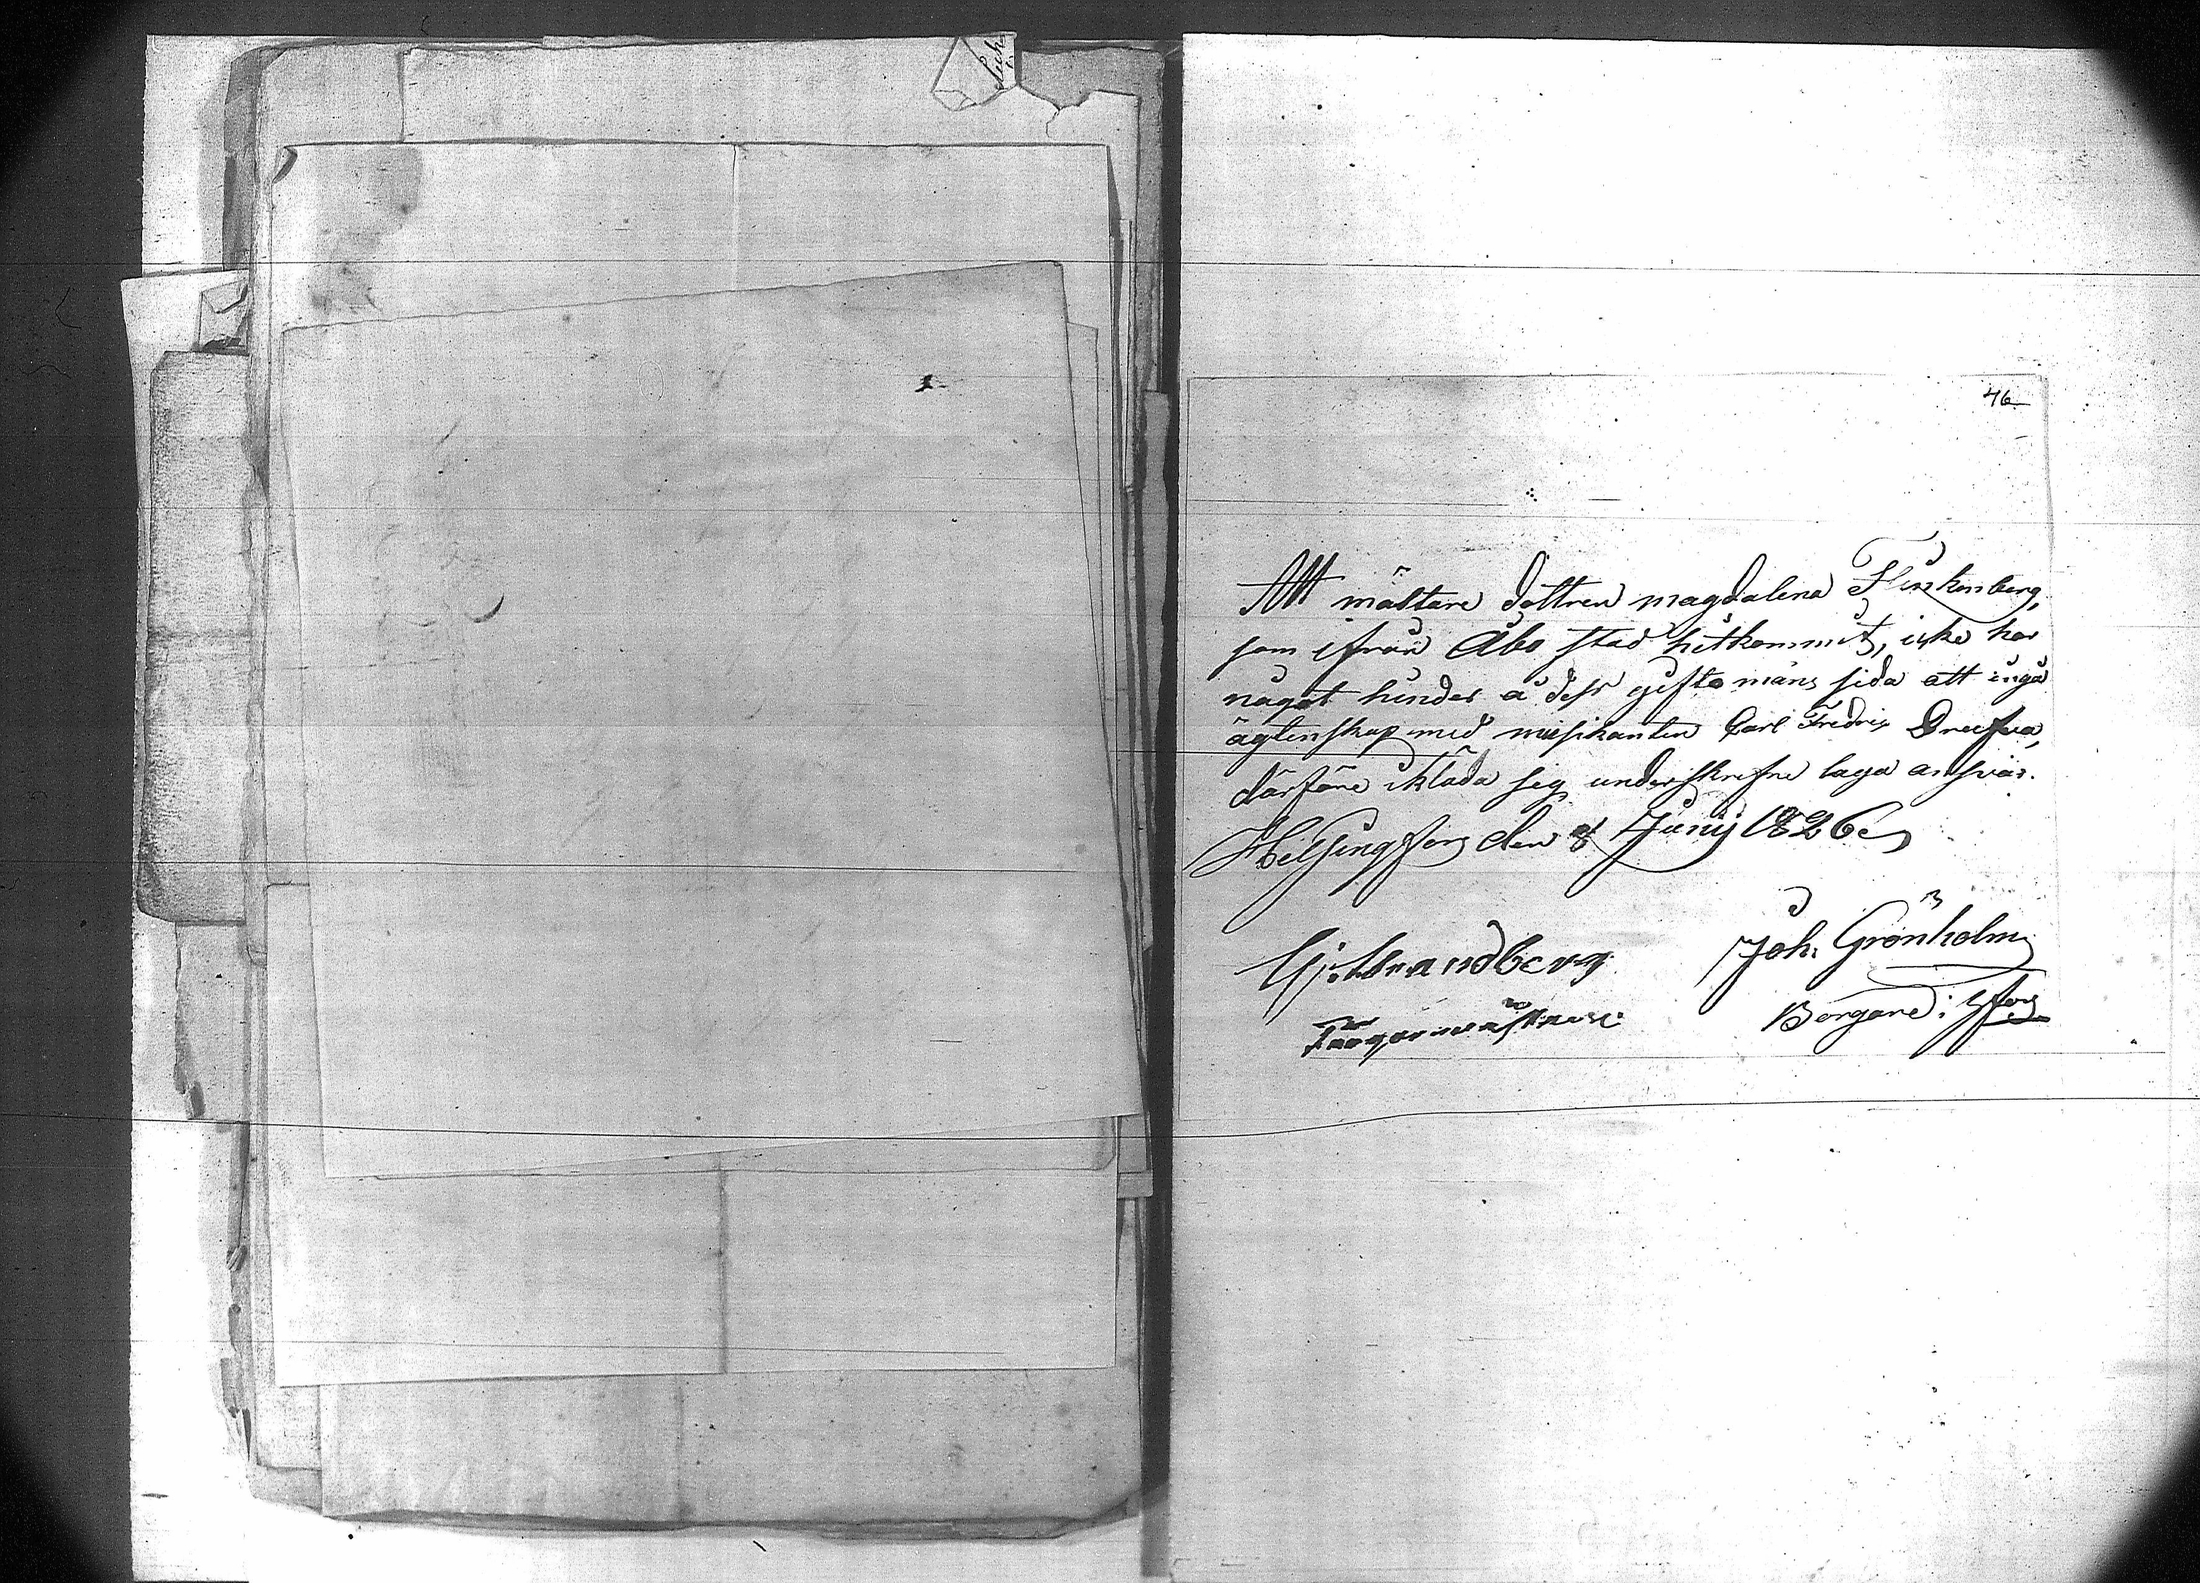 46
Att mältare dottren magdalena Flinkenberg,
som ifrån Åbo stad hitkommit, icke har
något hinder å dess gifto mans sida att ingå
ägtenskap med musikanten Carl Fredric
därföre ikläda sig underskrefne laga ansvar.
Helsingfors den 8 Junij 1826
Strandberg Joh: Grönholm
Färgaremästare Borgare i Hfors